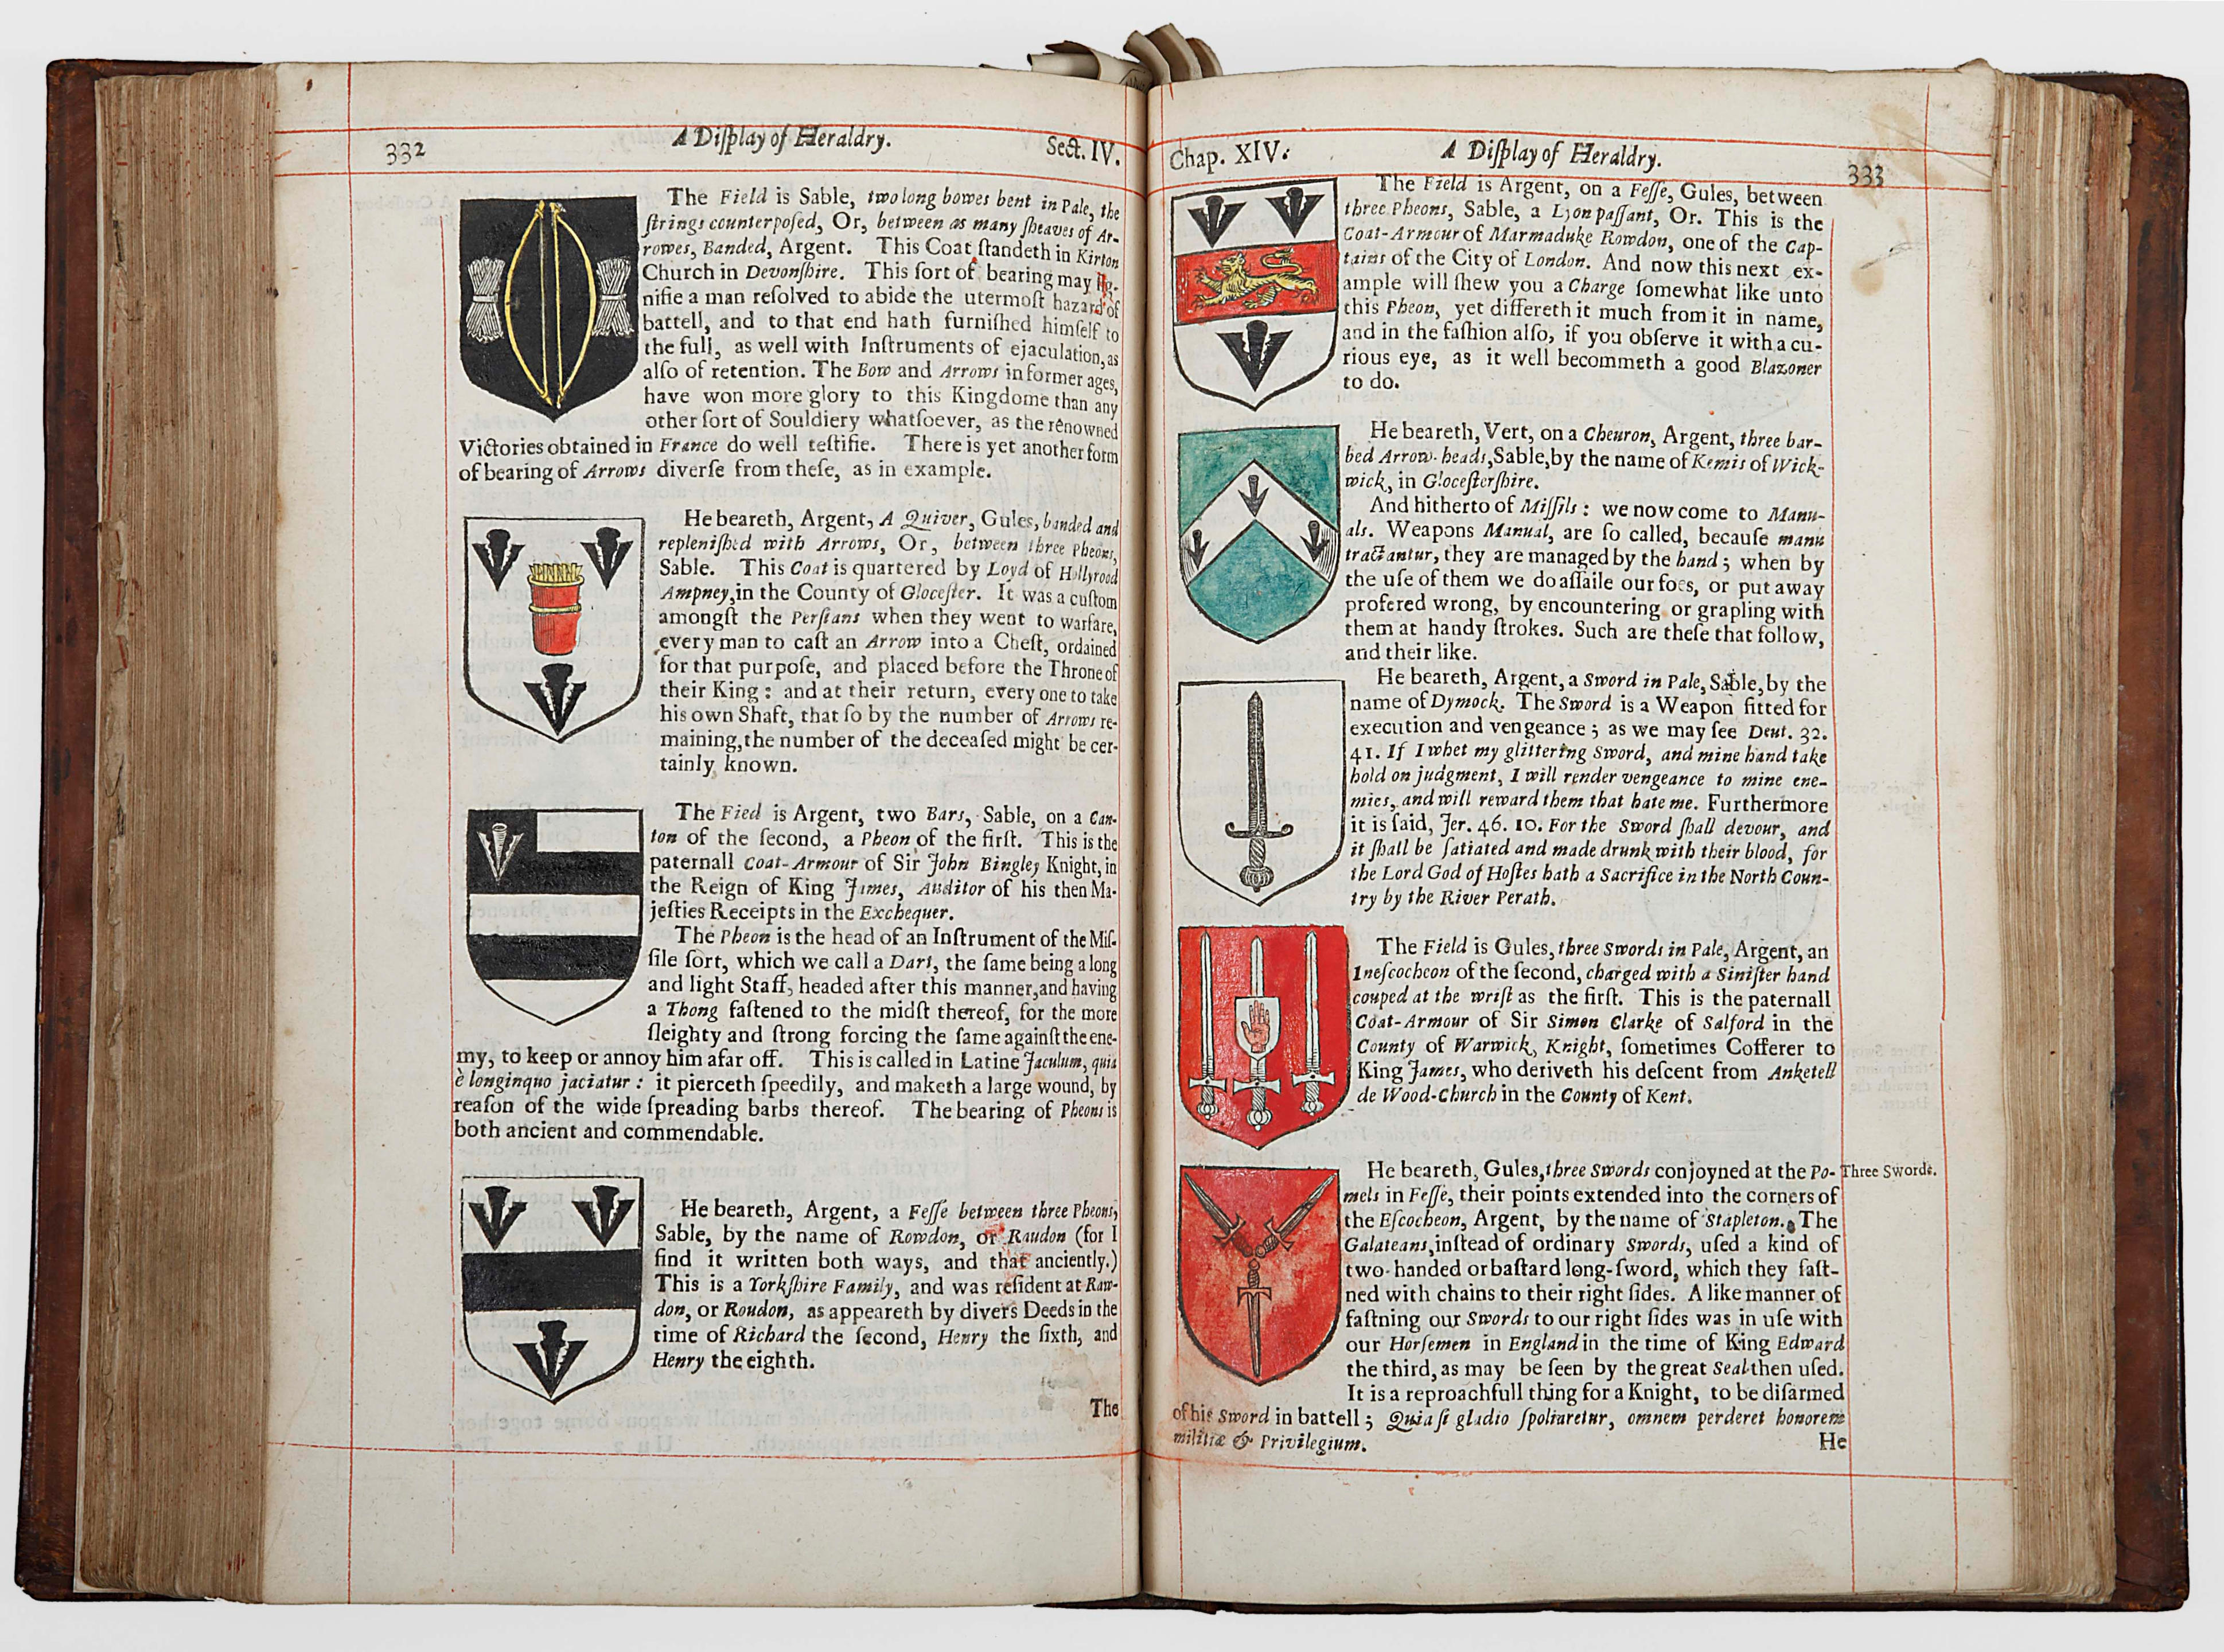 332
A Diſplay of Heraldry.
Sect. IV.
The Field is Sable, two long bowes bent in Pale, the
ſtrings counterpoſed, Or, between as many ſheaves of Ar-
rowes, Banded, Argent. This Coat ſtandeth in Kirton
Church in Devonſhire. This ſort of bearing may ſig-
nifie a man reſolved to abide the utermoſt hazard of
battell, and to that end hath furniſhed himſelf to
the full, as well with Inſtruments of ejaculation, as
alſo of retention. The Bow and Arrows in former ages,
have won more glory to this Kingdome than any
other ſort of Souldiery whatſoever, as the renowned
Victories obtained in France do well teſtifie. There is yet another form
of bearing of Arrows diverſe from theſe, as in example.
He beareth, Argent, A Quiver, Gules, banded and
repleniſhed with Arrows, Or, between three Pheons,
Sable. This Coat is quartered by Loyd of Hollyrood
Ampney, in the County of Gloceſter. It was a cuſtom
amongſt the Perſians when they went to warfare,
every man to caſt an Arrow into a Cheſt, ordained
for that purpoſe, and placed before the Throne of
their King: and at their return, every one to take
his own Shaft, that ſo by the number of Arrows re-
maining, the number of the deceaſed might be cer-
tainly known.
The Fied is Argent, two Bars, Sable, on a Can-
ton of the ſecond, a Pheon of the firſt. This is the
paternall Coat-Armour of Sir John Bingley Knight, in
the Reign of King James, Auditor of his then Ma-
jeſties Receipts in the Exchequer.
The Pheon is the head of an Inſtrument of the Miſ-
ſile ſort, which we call a Dart, the ſame being a long
and light Staff, headed after this manner, and having
a Thong faſtened to the midſt thereof, for the more
ſleighty and ſtrong forcing the ſame againſt the ene-
my, to keep or annoy him afar off. This is called in Latine Jaculum, quia
è longinquo jaciatur: it pierceth ſpeedily, and maketh a large wound, by
reaſon of the wide ſpreading barbs thereof. The bearing of Pheons is
both ancient and commendable.
He beareth, Argent, a Feſſe between three Pheons,
Sable, by the name of Rowdon, or Raudon (for I
find it written both ways, and that anciently.)
This is a Yorkſhire Family, and was reſident at Raw-
don, or Roudon, as appeareth by divers Deeds in the
time of Richard the ſecond, Henry the ſixth, and
Henry the eighth.
The
Chap. XIV.
A Diſplay of Heraldry.
333
The Field is Argent, on a Feſſe, Gules, between
three Pheons, Sable, a Lyon paſſant, Or. This is the
Coat-Armour of Marmaduke Rowdon, one of the Cap-
tains of the City of London. And now this next ex-
ample will ſhew you a Charge ſomewhat like unto
this Pheon, yet differeth it much from it in name,
and in the faſhion alſo, if you obſerve it with a cu-
rious eye, as it well becommeth a good Blazoner
to do.
He beareth, Vert, on a Cheuron, Argent, three bar-
bed Arrow-heads, Sable, by the name of Kemis of Wick-
wick, in Gloceſterſhire.
And hitherto of Miſſils: we now come to Manu-
als. Weapons Manual, are ſo called, becauſe manu
tractantur, they are managed by the hand; when by
the uſe of them we do aſſaile our foes, or put away
profered wrong, by encountering or grapling with
them at handy ſtrokes. Such are theſe that follow,
and their like.
He beareth, Argent, a Sword in Pale, Sable, by the
name of Dymock. The Sword is a Weapon fitted for
execution and vengeance; as we may ſee Deut. 32.
41. If I whet my glittering Sword, and mine hand take
hold on judgment, I will render vengeance to mine ene-
mies, and will reward them that hate me. Furthermore
it is ſaid, Jer. 46. 10. For the Sword ſhall devour, and
it ſhall be ſatiated and made drunk with their blood, for
the Lord God of Hoſtes hath a Sacrifice in the North Coun-
try by the River Perath.
The Field is Gules, three Swords in Pale, Argent, an
Ineſcocheon of the ſecond, charged with a Siniſter hand
couped at the wriſt as the firſt. This is the paternall
Coat-Armour of Sir Simon Clarke of Salford in the
County of Warwick, Knight, ſometimes Cofferer to
King James, who deriveth his deſcent from Anketell
de Wood-Church in the County of Kent.
He beareth, Gules, three Swords conjoyned at the Po-
Three Swords.
mels in Feſſe, their points extended into the corners of
the Eſcocheon, Argent, by the name of Stapleton. The
Galateans, inſtead of ordinary Swords, uſed a kind of
two-handed or baſtard long-ſword, which they faſt-
ned with chains to their right ſides. A like manner of
faſtning our Swords to our right ſides was in uſe with
our Horſemen in England in the time of King Edward
the third, as may be ſeen by the great Seal then uſed.
It is a reproachfull thing for a Knight, to be diſarmed
of his Sword in battell; Quia ſi gladio ſpoliaretur, omnem perderet honorem
militiæ & Privilegium.
He